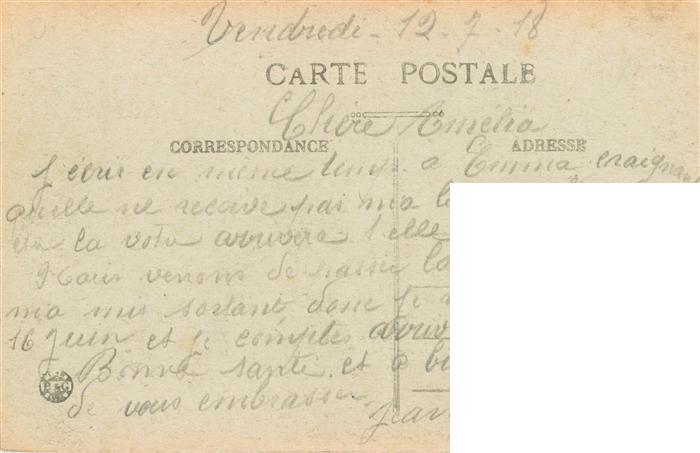 Vendredi - 12-7-18
CARTE POSTALE
Chère Amélia
CORRESPONDANCE
ADRESSE
J'écris en même temps a Emma craignant
quelle ne recoive pas ma
la votre arrivera
Nous venons de passer la
ma mis sortant donc je
16 Juin et je comptes
Bonne santé et a
P & C
de vous embrasser